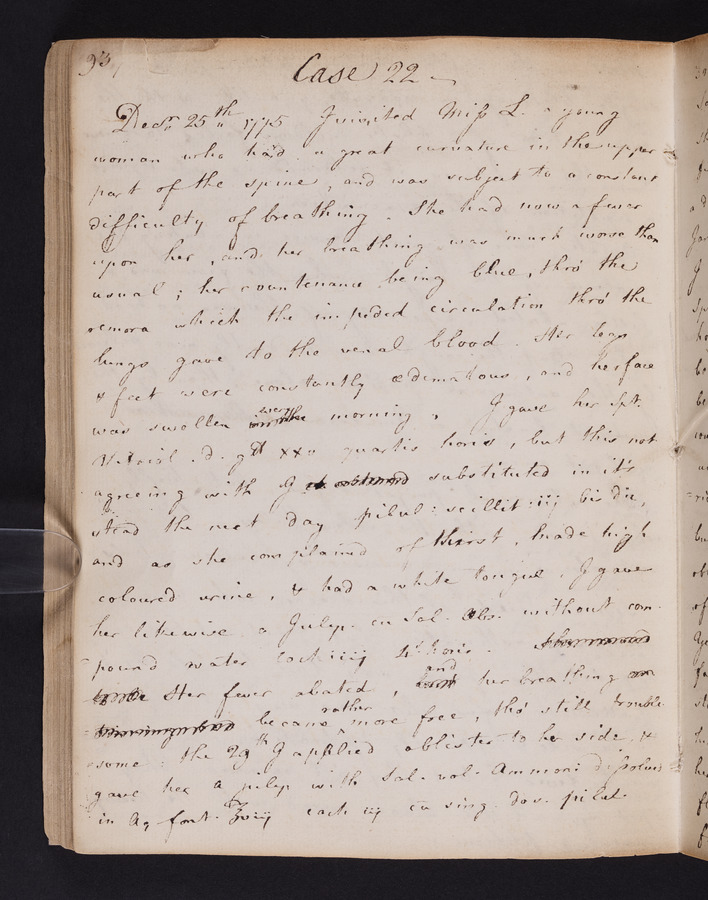 93
Case 22
Decr. 25th 1775 I visited Miss L. a young
woman who had a great curvature in the upper
part of the spine, and was subject to a constant
difficulty of breathing. She had now a fever
upon her, and her breathing was much worse than
usual; her countenance being blue, thro' the
remora which the impeded circulation thro' the
lungs gave to the venal blood. Her legs
& feet were constantly œdematous, and her face
was swollen every morning. I gave her Spt.
Vitriol. d. gtt xxv quartis horis, but this not
agreeing with I substituted in it's
stead the next day pilul: scillit: iij bis die,
and as she complained of thirst, made high
coloured urine, & had a white tongue, I gave
her likewise a Julep. cu Sal. Abs. without com-
pound water coch iiij 4t. horis.
Her fever abated, and her breathing
became rather more free, tho' still trouble-
some: the 29th I applied a blister to her side, &
gave her a julep with Sal. vol. Ammoni dissolved
in Aq font. ℥viij coch iij cu sing. dos. pilul.